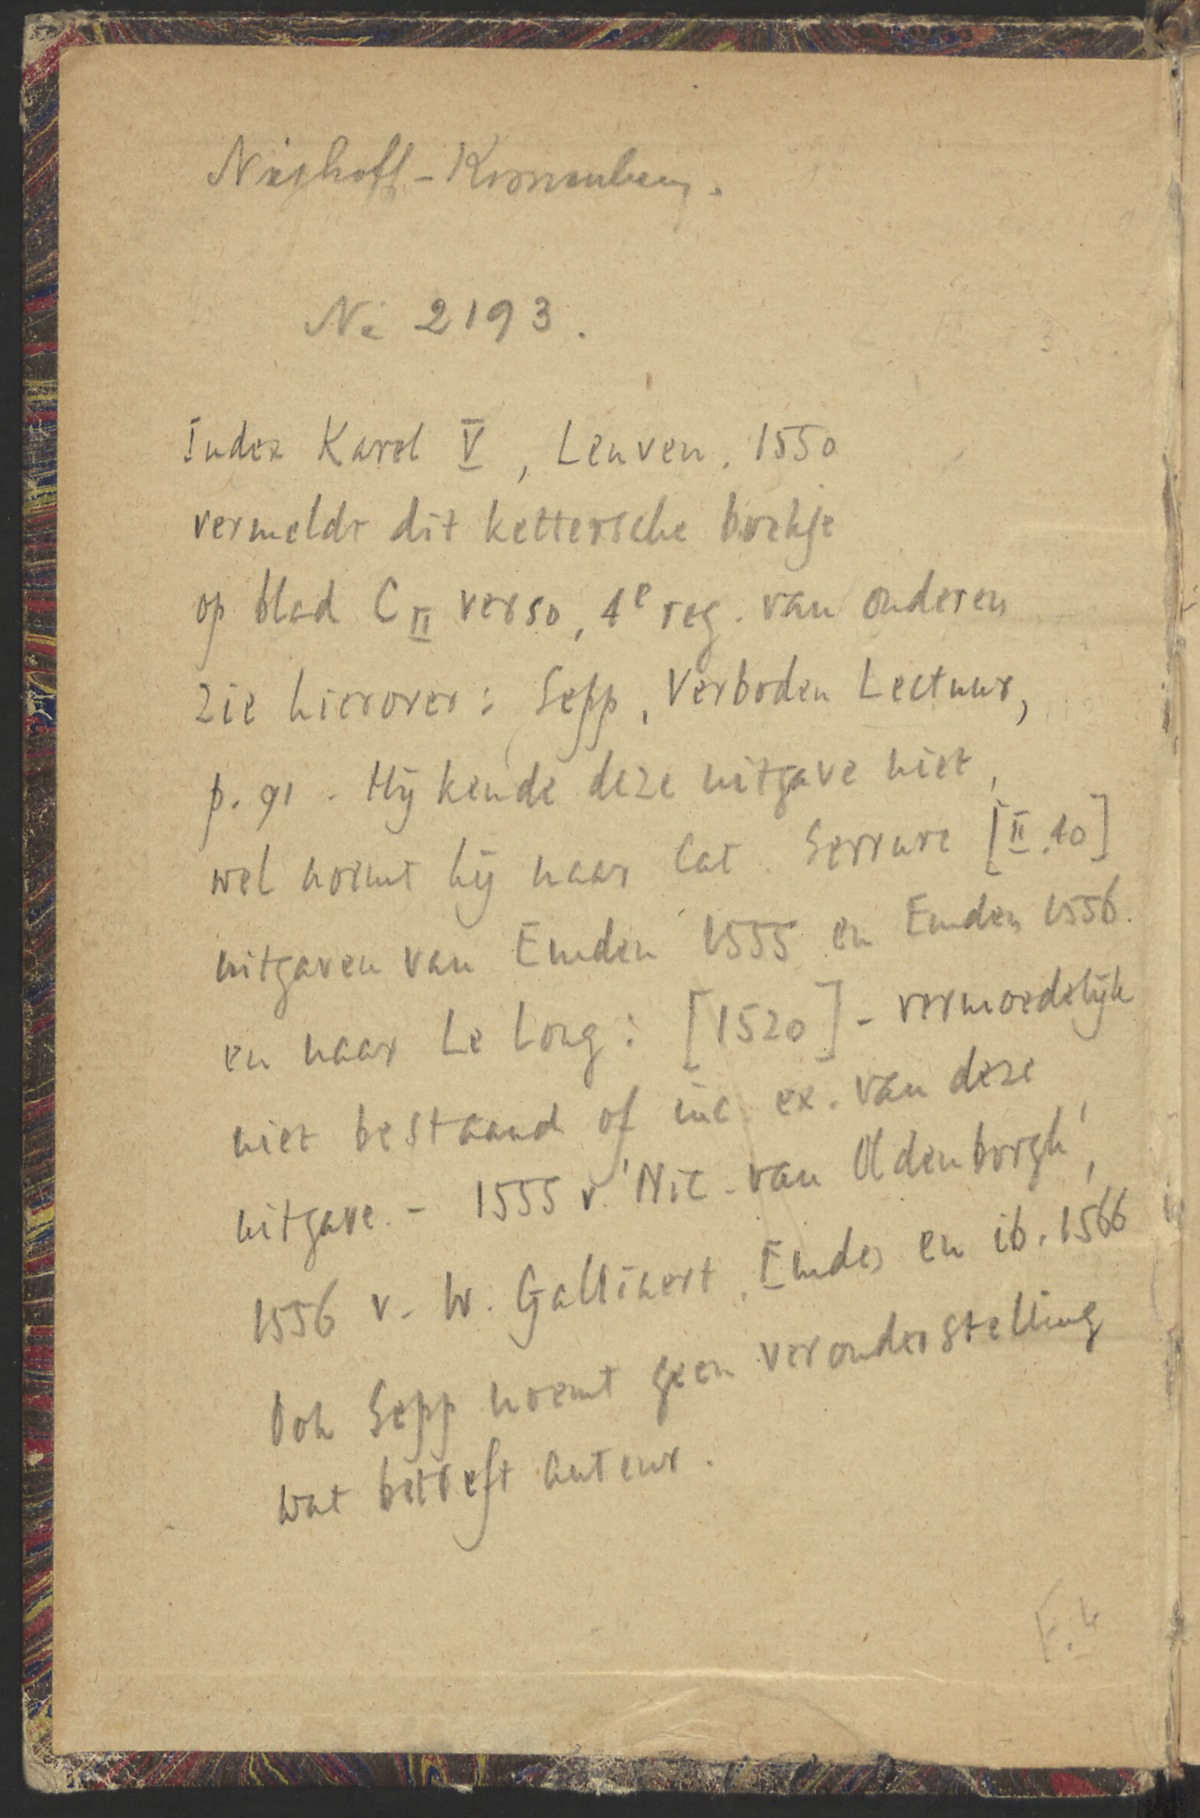 Nijhoff-Kronenberg.
No 2193.
Index Karel V, Leuven. 1550
vermeldt dit kettersche boekje
op blad C II verso, 4e reg. van onderen
zie hierover: Sepp, Verboden Lectuur,
p. 91. Hij kende deze uitgave niet,
wel noemt hij naar Cat. Serrure [II.40]
uitgaven van Emden 1555 en Emden 1556.
en naar Le Long: [1520] - vermoedelijk
niet bestaand of inc. ex. van deze
uitgave. - 1555 v. 'Nic. van Oldenborgh',
1556 v. W. Gallinert, Emden en ib. 1566
Ook Sepp noemt geen veronderstelling
wat betreft auteur.
F.4